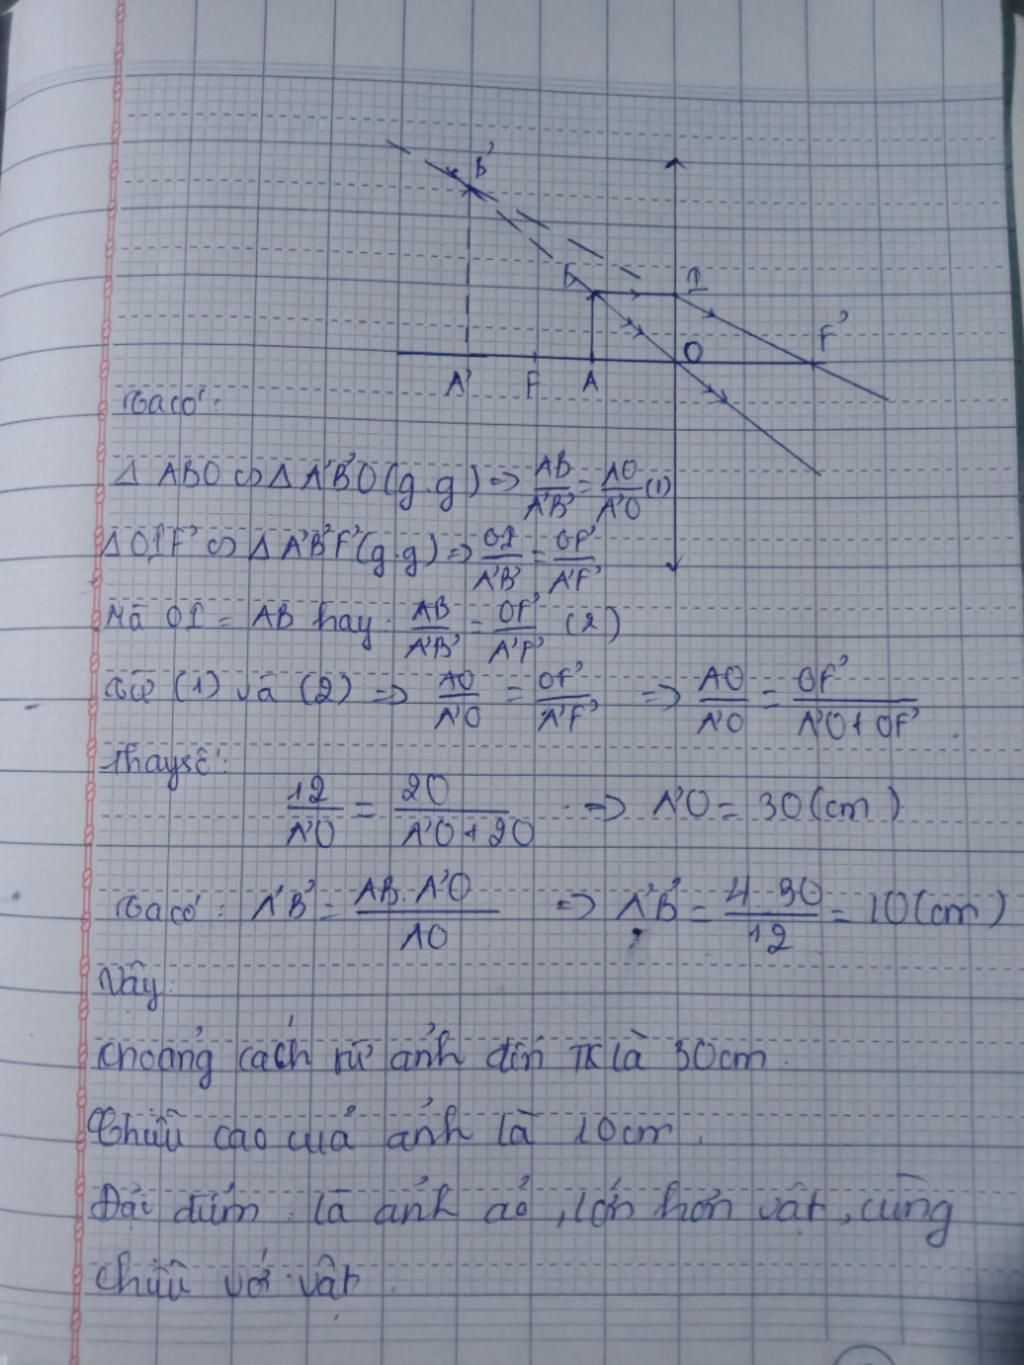 B'
B I
F'
O
A' F A
Ta có:
Δ ABO ∽ Δ A'B'O (g.g) => AB/A'B' = AO/A'O (1)
Δ OIF' ∽ Δ A'B'F' (g.g) => OI/A'B' = OF'/A'F'
Mà OI = AB hay: AB/A'B' = OF'/A'F' (2)
Từ (1) và (2) => AO/A'O = OF'/A'F' => AO/A'O = OF'/A'O + OF'
Thay số:
12/A'O = 20/A'O + 20 => A'O = 30 (cm)
Ta có: A'B' = AB. A'O/AO => A'B' = 4. 30/12 = 10 (cm)
Vậy:
Khoảng cách từ ảnh đến TK là 30cm.
Chiều cao của ảnh là 10cm.
Đặc điểm: là ảnh ảo, lớn hơn vật, cùng
chiều với vật.